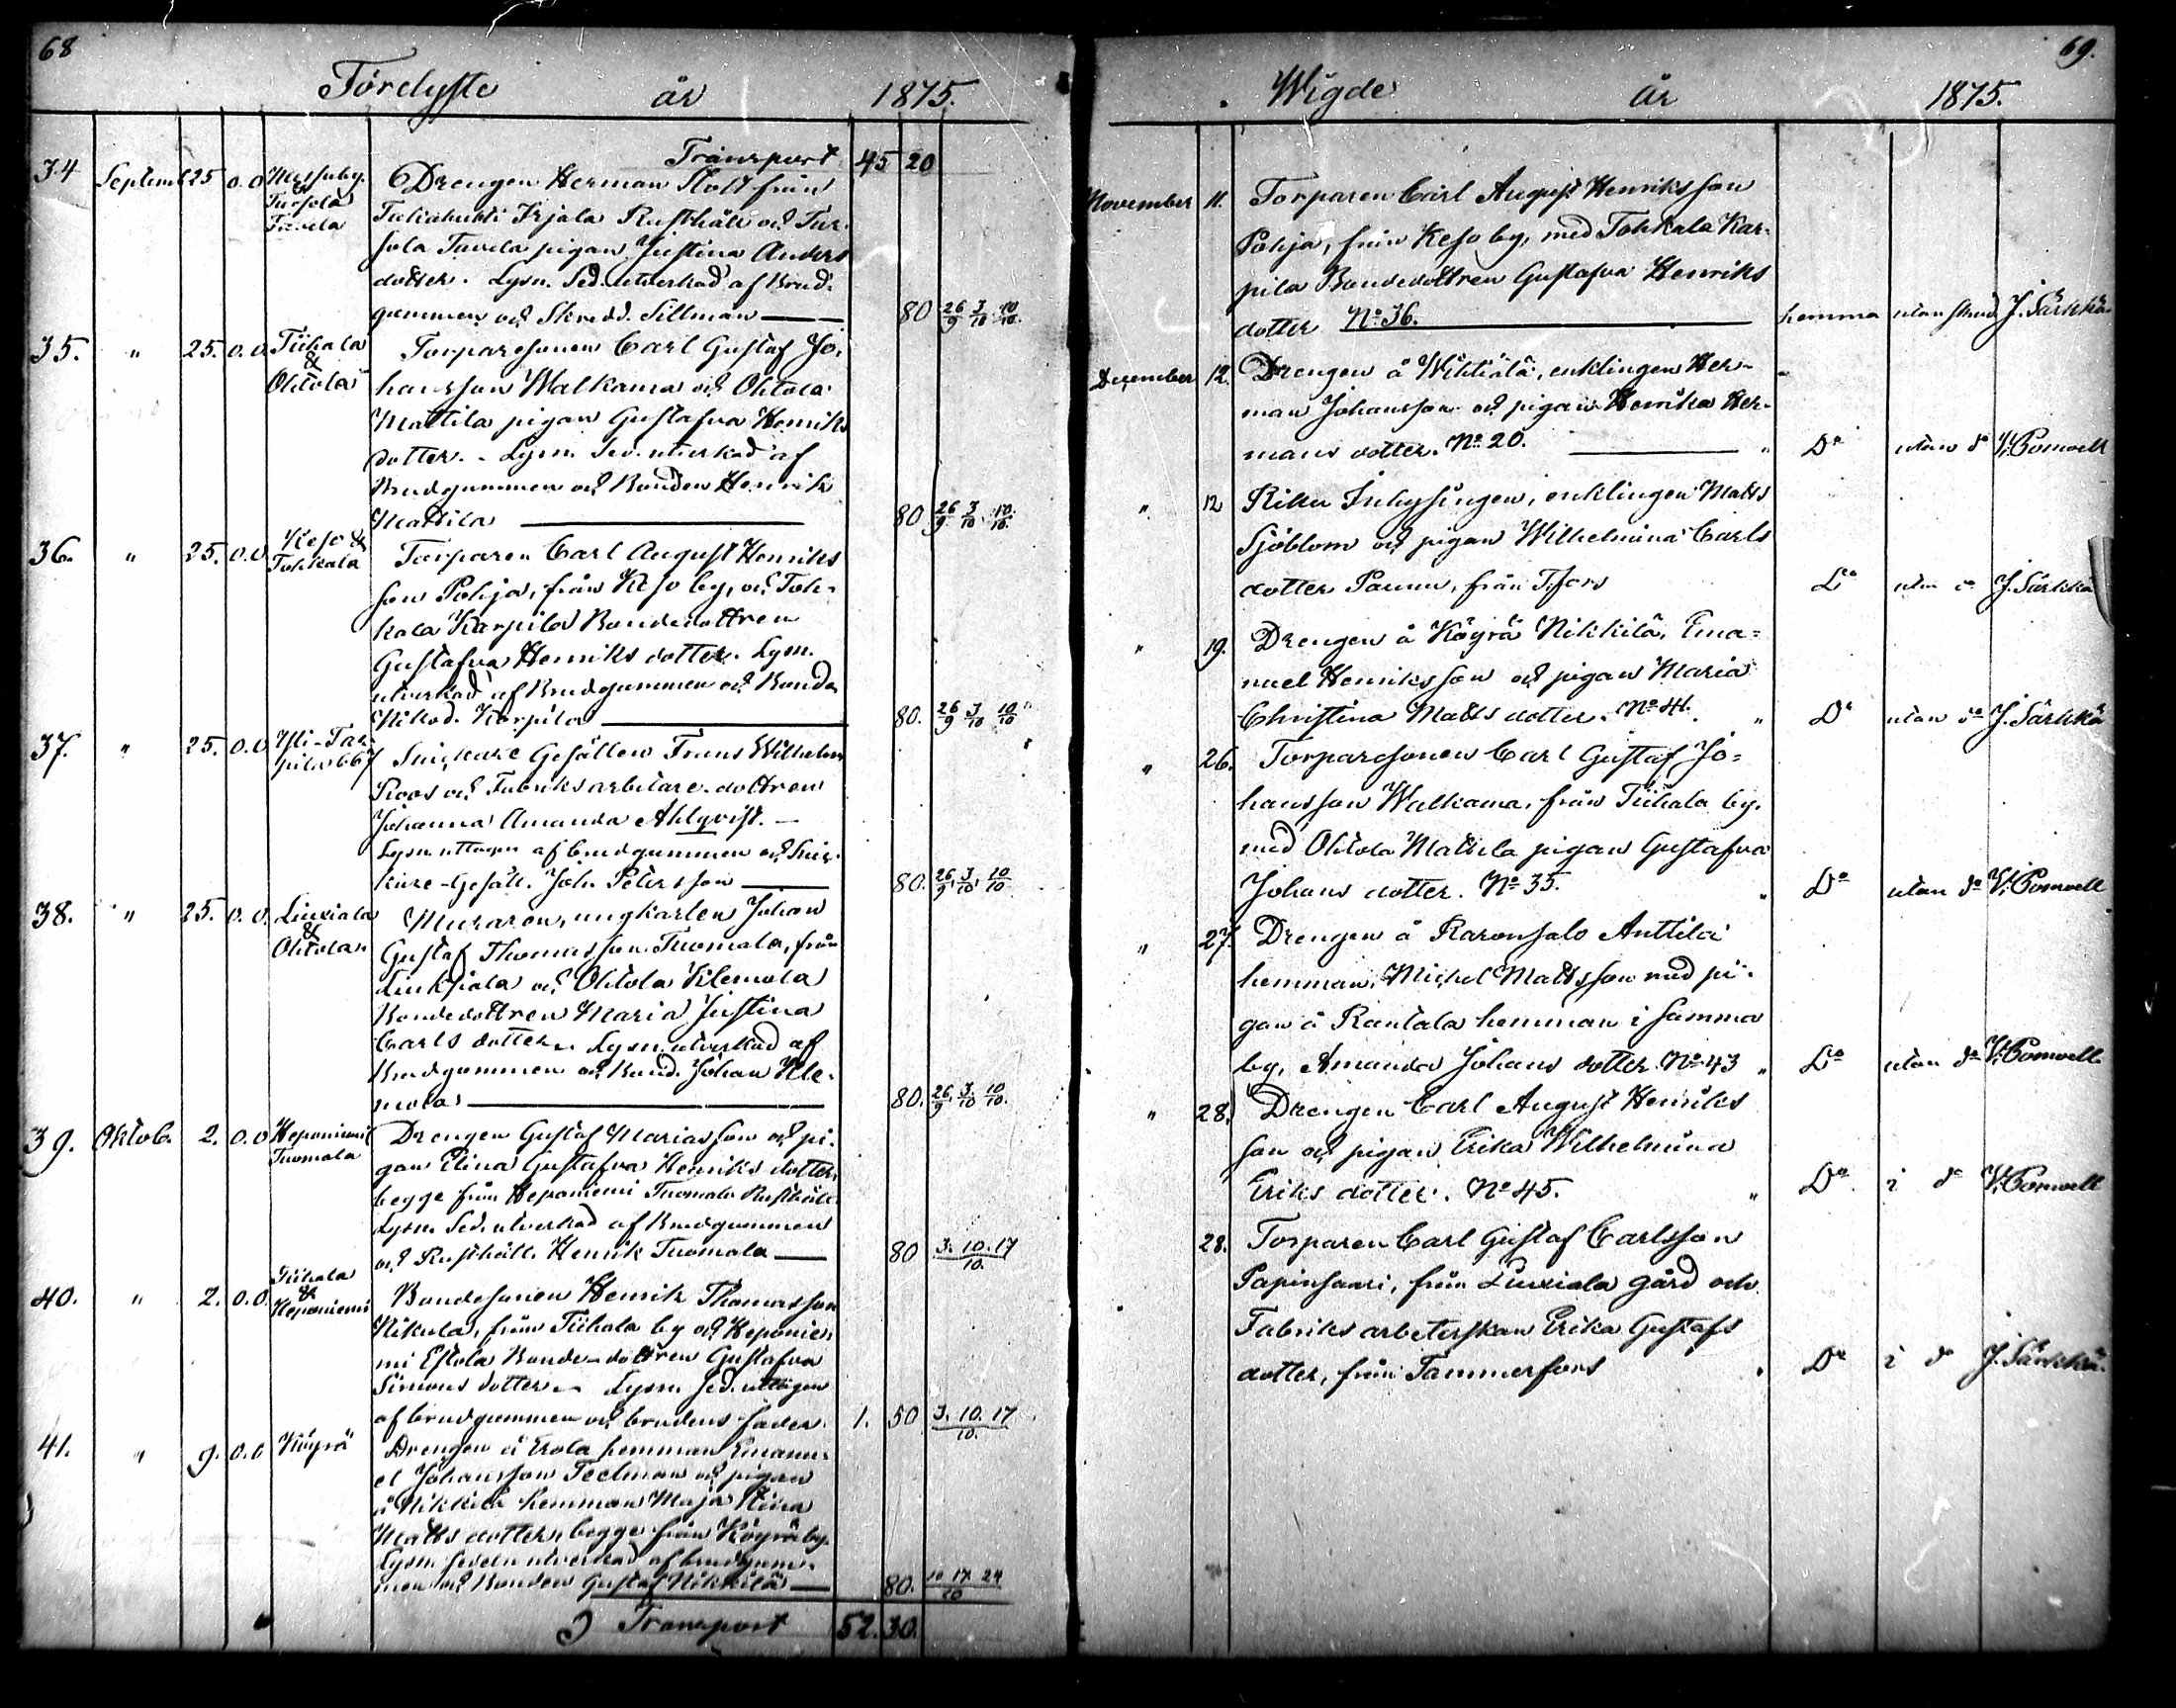 68
Förelyste år 1875.
Transport 45 20
34 Septemb 25 0.0 Messuby. Drengen Herman Stolt från
& Turjola Takahuhti Irjala Rusthåll och Tur-
Tavela jola Tavela pigan Justina Anders
dotter. Lysn. Sed. utverkad af Brud-
gummen och Skredd. Sillman 80 26/9 3/10 10/10.
35. " 25. 0.0. Tiihala Torparesonen Carl Gustaf Jo-
& Ohtola hansson Walkama och Ohtola
Mattila pigan Gustafva Henriks
dotter. - Lysn. Sed. utverkad af
Brudgummen och Bonden Henrik
Mattila 80 26/9 3/10 10/10.
36. " 25. 0.0 Keso & Torparen Carl August Henriks
Tohkala son Pohja, från Keso by, och Toh-
kala Karpila Bondedottren
Gustafva Henriks dotter. Lysn.
utverkad af Brudgummen och Bonde
Nikod. Karpila 80. 26/9 3/10 10/10
37. " 25. 0.0 Yli- Snickare Gesällen Frans Wilhelm
Roos och Fabriksarbetare-dottren
Johanna Amanda Ahlqvist. -
Lysn. uttagen af brudgummen och Snic-
kare-Gesäll. Joh. Petersson 80. 26/9, 3/10, 10/10
38. " 25. 0.0. Liuxiala Muraren, ungkarlen Johan
& Ohtola Gustaf Thomasson Tuomala, från
Liuksiala och Ohtola Klemola
Bondedottren Maria Justina
Carls dotter. Lysn. utverkad af
Brudgummen och Bond. Johan Kle-
mola 80. 26/9. 3/10 10/10.
39. Oktob. 2. 0.0 Heponiemi Drengen Gustaf Mariasson och pi-
Tuomala gan Elina Gustafva Henriks dotter,
begge från Heponiemi Tuomala Rusthåll.
Lysn. Sed. utverkad af Brudgummen
och Rusthåll. Henrik Tuomala 80 3. 10. 17/10.
40. " 2. 0.0. Tiihala & Heponiemi Bondesonen Henrik Thomasson
Nikula, från Tiihala by och Heponie-
mi Estola Bonde-dottren Gustafva
Simons dotter. Lysn. sed. uttagen
af brudgummen och brudens fader. 1. 50 3. 10. 17/10.
41. " 9. 0.0 Köyrä Drengen å Erola hemman Emanu-
el Johansson Teelman och pigan
å Nikkilä hemman Maja Stina
Matts dotter, begge från Köyrä by.
Lysn. sedeln utverkad af brudgum-
men och Bonden Gustaf Nikkilä 80. 10 17. 24/10
Transport 52. 30.
69.
Wigde år 1875.
November 11. Torparen Carl August Henriksson
Pohja, från Keso by, med Tohkala Kar-
pila Bondedottren Gustafva Henriks
dotter No 36. hemma utan J. Särkkä
December 12. Drengen å Wihtiälä, enklingen Her-
man Johansson och pigan Henrika Her-
mans dotter. No 20. " Do utan do V. Bonwell
" 12 Riku Inhysingen, enklingen Matts
Sjöblom och pigan Wilhelmina Carls
dotter, från T:fors Do utan do J. Särkkä
" 19. Drengen å Köyrä Nikkilä, Ema-
nuel Henriksson och pigan Maria
Christina Matts dotter. No 41. " Do utan do J. Särkkä
" 26. Torparesonen Carl Gustaf Jo-
hansson Walkama, från Tiihala by,
med Ohtola Mattila pigan Gustafva
Johans dotter. No 35. " Do utan do V. Bonwell
" 27. Drengen å Raronsalo Anttila
hemman, Michel Mattsson med pi-
gan å Rantala hemman i samma
by, Amanda Johans dotter No 43 " Do utan do V. Bonwell
" 28. Drengen Carl August Henriks
son och pigan Erika Wilhelmina
Eriks dotter. No 45. " Do i do V. Bonwell
28. Torparen Carl Gustaf Carlsson
Papinsaari, från Liuxiala gård och
Fabriks arbeterskan Erika Gustafs
dotter, från Tammerfors " Do i do J. Särkkä.